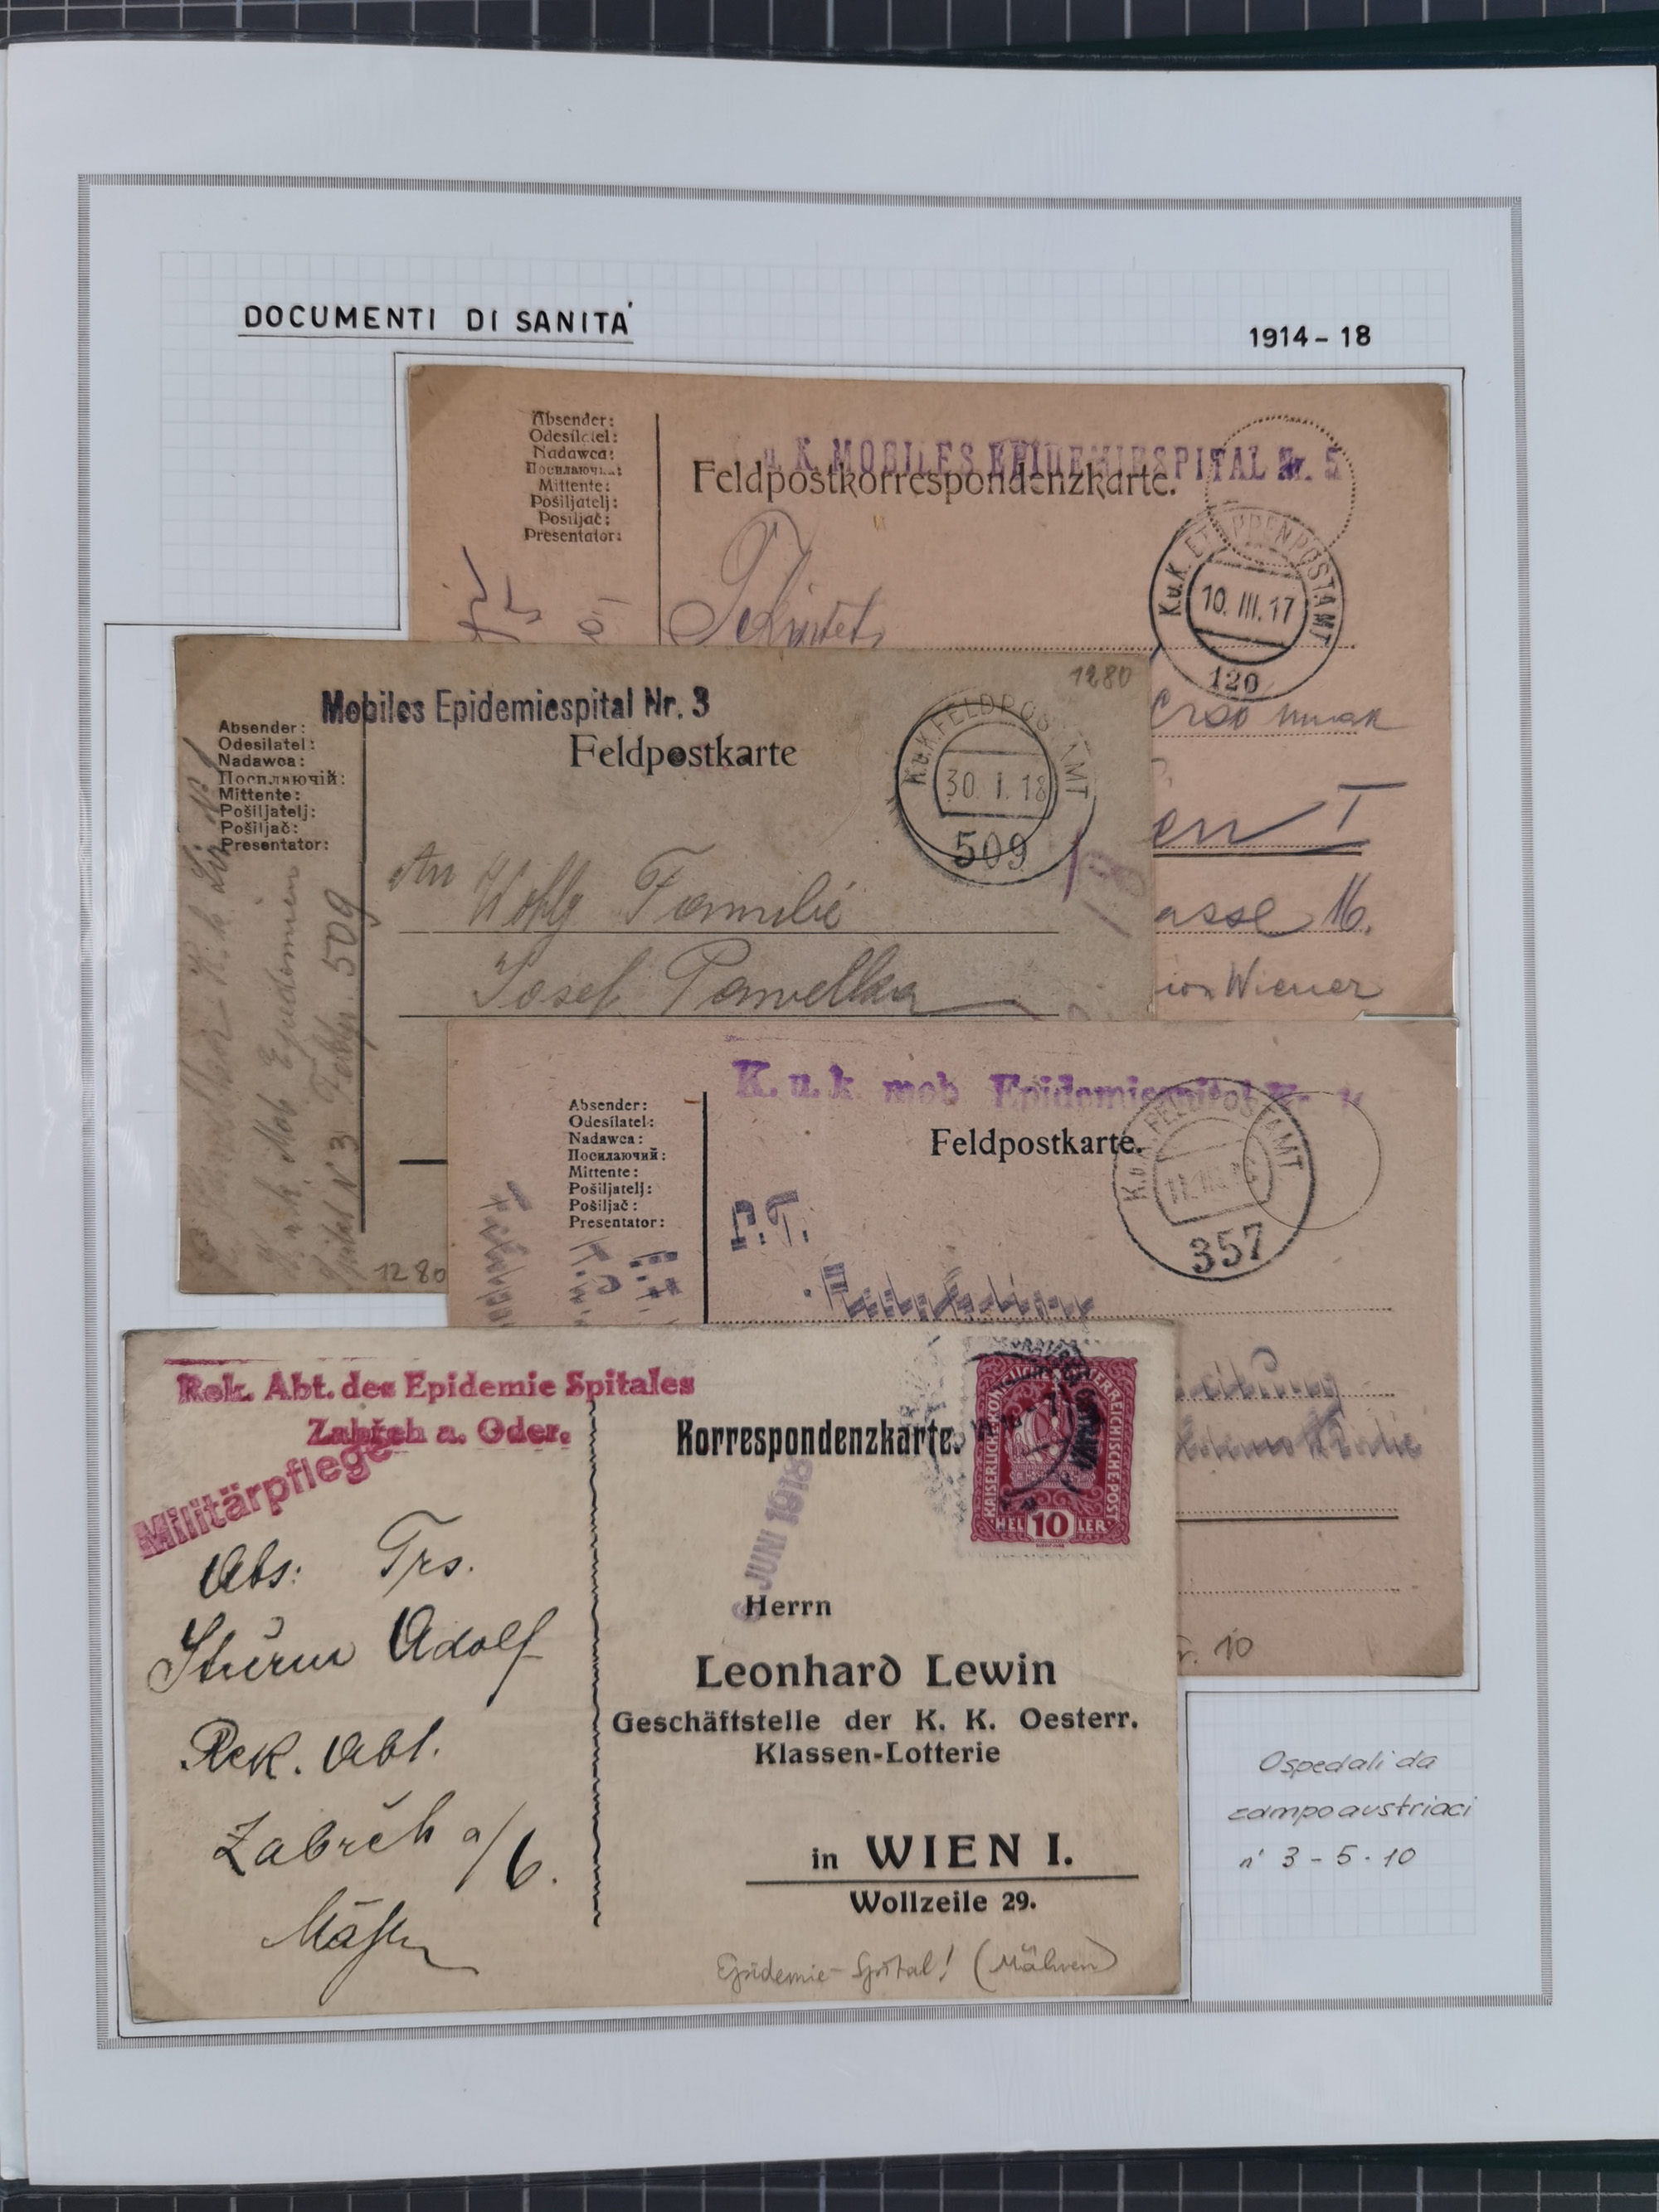 DOCUMENTI DI SANITA'
1914-18
Absender:
Odesílatel:
Nadawca:
Mittente:
Pošiljatelj:
Pošiljač:
Presentator:
u. K. MOBILES EPIDEMIESPITAL Nr. 5
Feldpostkorrespondenzkarte.
K.u.K. ETAPPENPOSTAMT
10. III. 17
120
en I
asse 16.
Wiener
Mobiles Epidemiespital Nr. 3
1280
Absender:
Odesílatel:
Nadawca:
Посилаючий:
Mittente:
Pošiljatelj:
Pošiljač:
Presentator:
Feldpostkarte
K.u.K. FELDPOSTAMT
30. I. 18
509
An Wohlg Familie
Josef Pawelka
K. u. k. Mob. Epidemien
Spital N 3 Feldp. 509
1280
K. u. k. mob Epidemiespital Nr.
Absender:
Odesílatel:
Nadawca:
Посилаючий:
Mittente:
Pošiljatelj:
Pošiljač:
Presentator:
Feldpostkarte.
K.u.K. FELDPOSTAMT
357
P.T.
r. 10
Rek. Abt. des Epidemie Spitales
Zabřeh a. Oder.
Militärpflege
Korrespondenzkarte.
KAISERLICHE KÖNIGLICHE ÖSTERREICHISCHE POST
HELLER
10
JUNI 1918
Abs: Trs.
Sturm Adolf
Rek. Abt.
Zabřeh a/6.
Herrn
Leonhard Lewin
Geschäftstelle der K. K. Oesterr.
Klassen-Lotterie
in WIEN I.
Wollzeile 29.
Epidemie-Spital! (Mähren)
Ospedali da
campo austriaci
n° 3 - 5 - 10